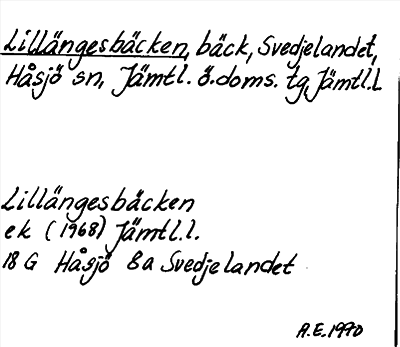 Lillängesbäcken, bäck, Svedjelandet,
Håsjö sn, Jämtl. ö. doms. tg, Jämtl.l.
Lillängesbäcken
ek (1968) Jämtl.l.
18 G Håsjö 8a Svedjelandet
A.E. 1970